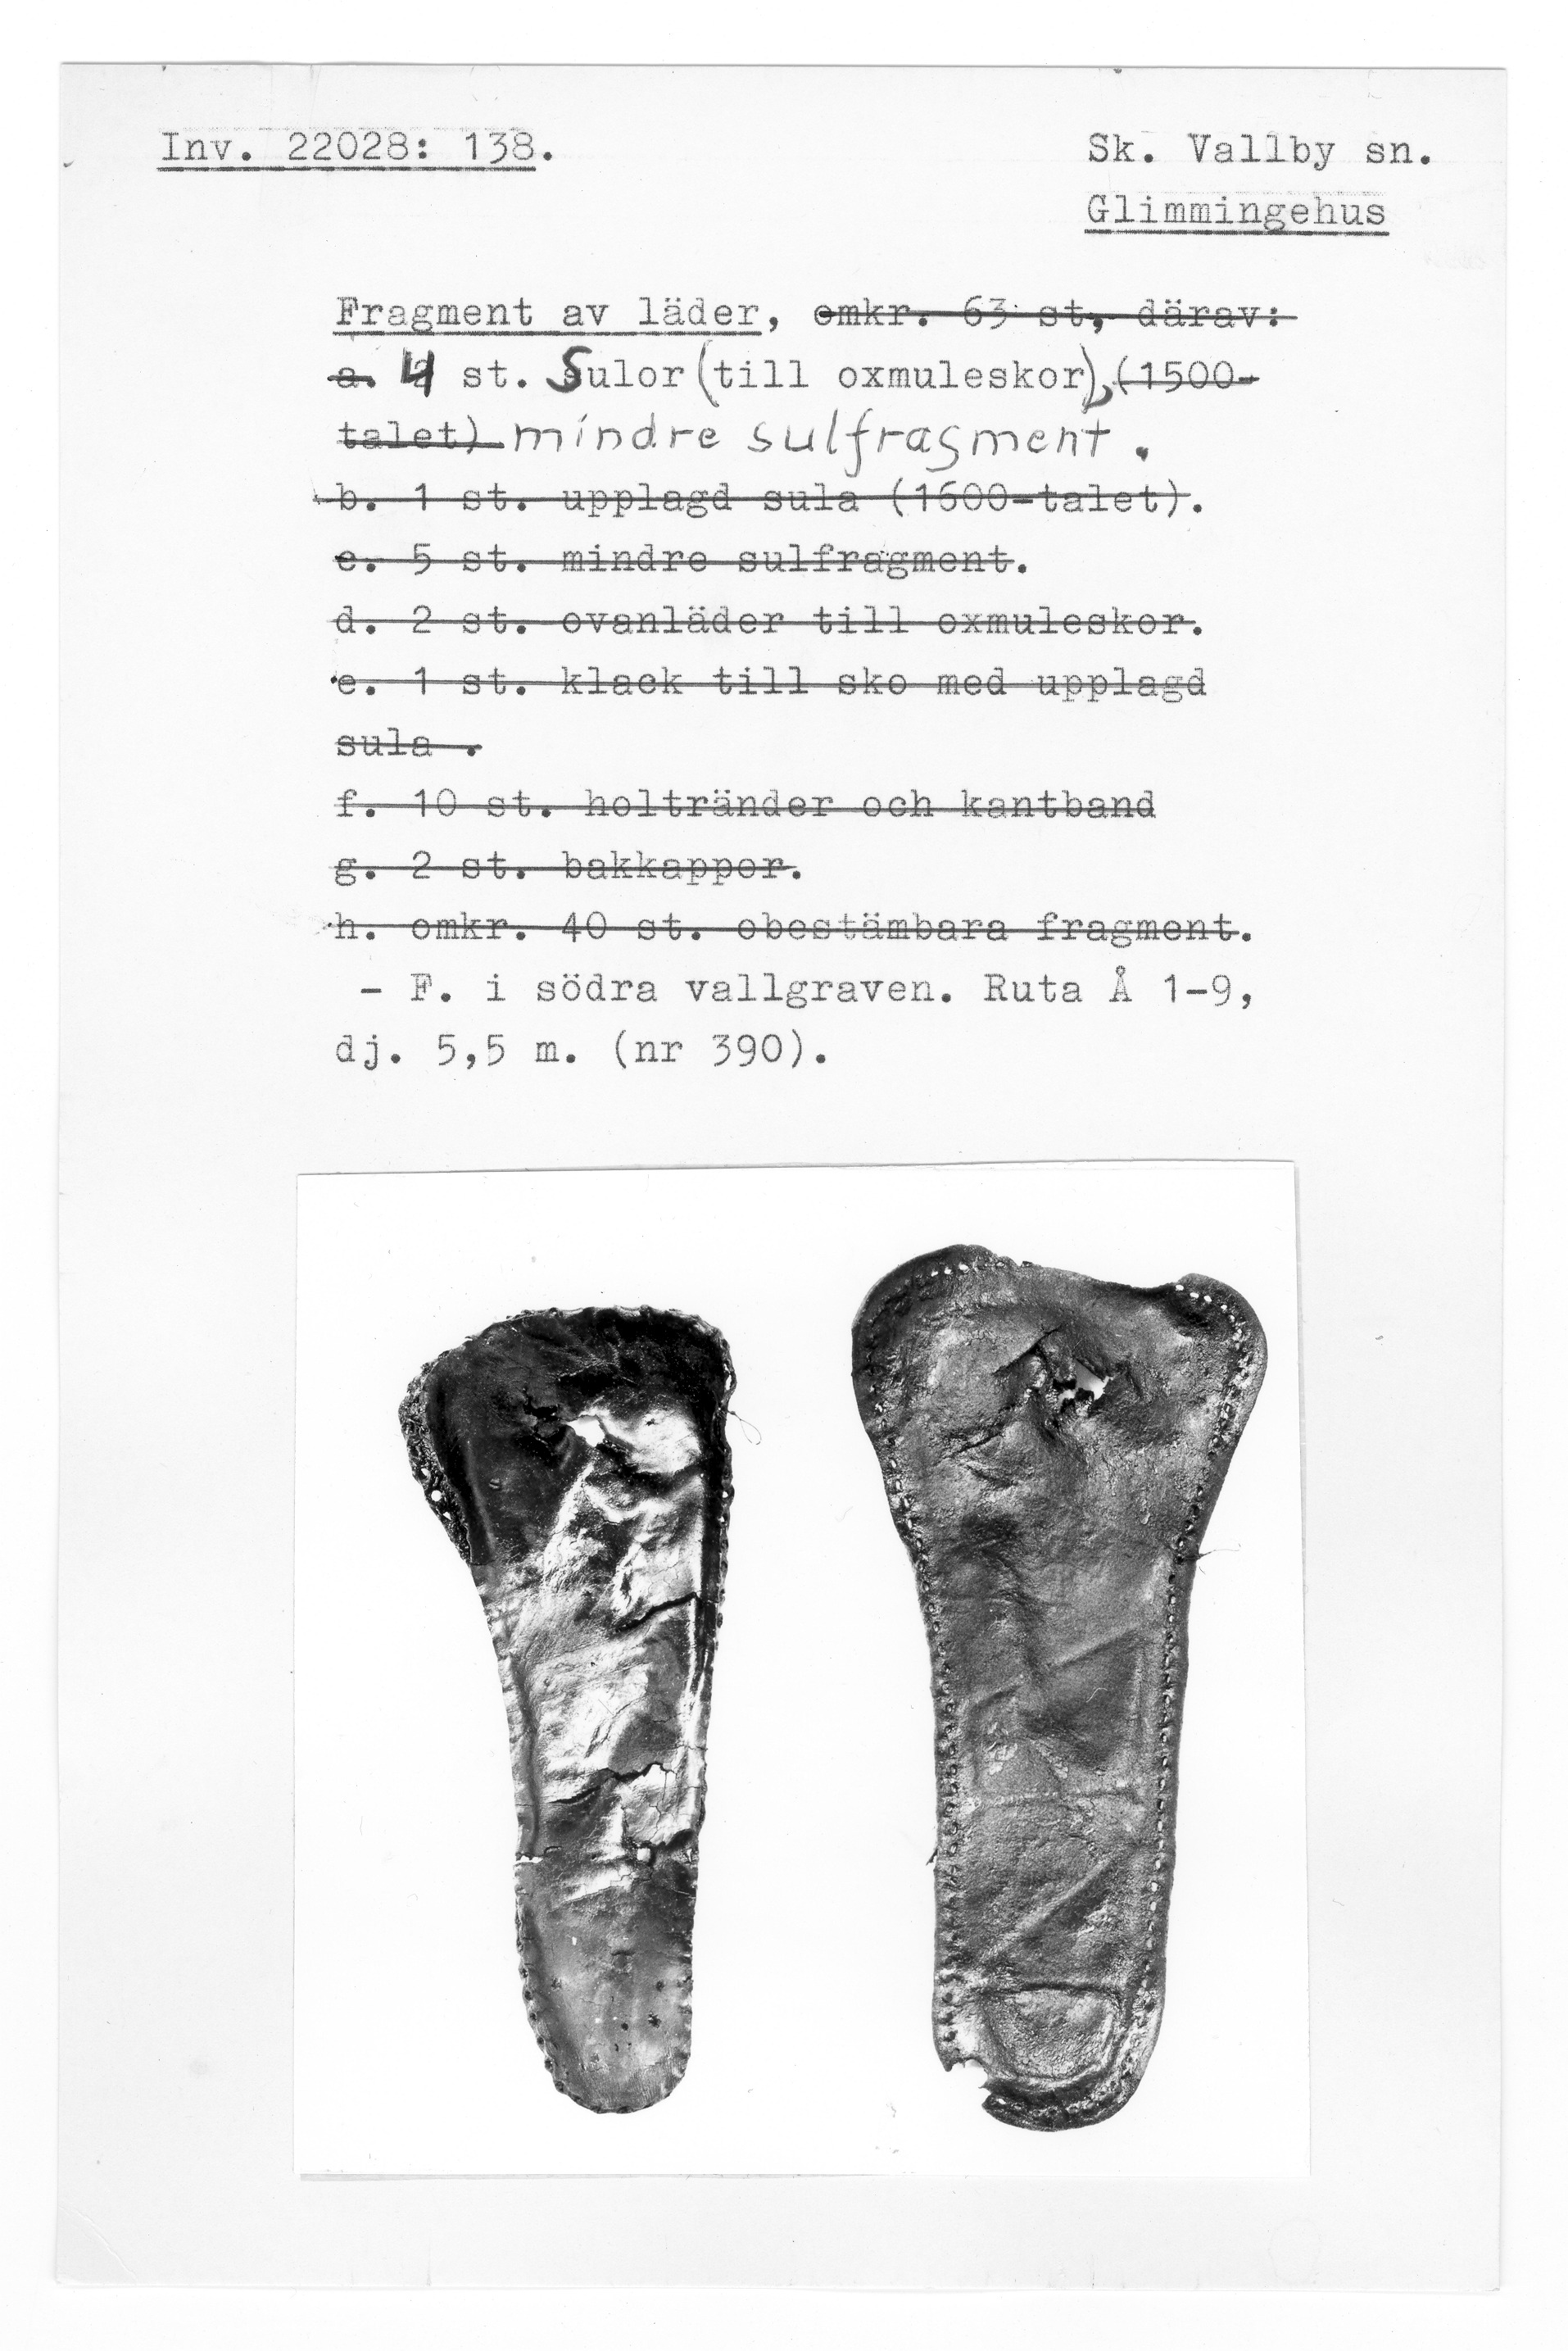 Inv. 22028: 138.
Sk. Vallby sn.
Glimmingehus
Fragment av läder, omkr. 63 st, därav:
a. 4 st. Sulor (till oxmuleskor), (1500-
talet) mindre sulfragment.
b. 1 st. upplagd sula (1600-talet).
c. 5 st. mindre sulfragment.
d. 2 st. ovanläder till oxmuleskor.
e. 1 st. klack till sko med upplagd
sula .
f. 10 st. holtränder och kantband
g. 2 st. bakkappor.
h. omkr. 40 st. obestämbara fragment.
- F. i södra vallgraven. Ruta Å 1-9,
dj. 5,5 m. (nr 390).